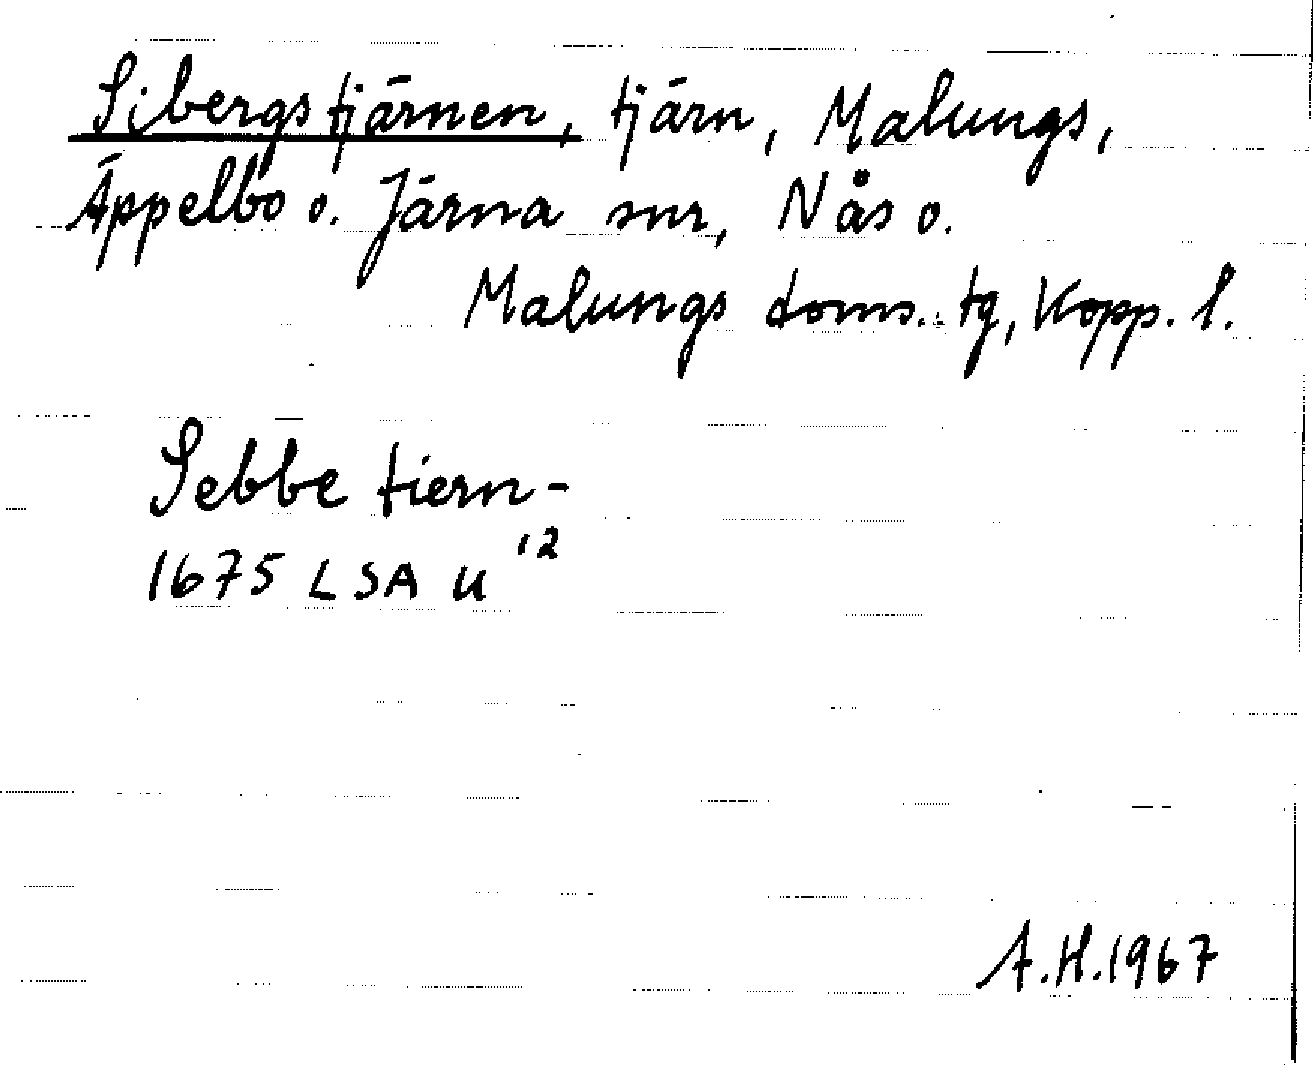 Sibergstjärnen, tjärn, Malungs,
Äppelbo o. Järna snr, Nås o.
Malungs doms. tg, Kopp. l.
Sebbe tiern-
1675 LSA U 12
A.H. 1967